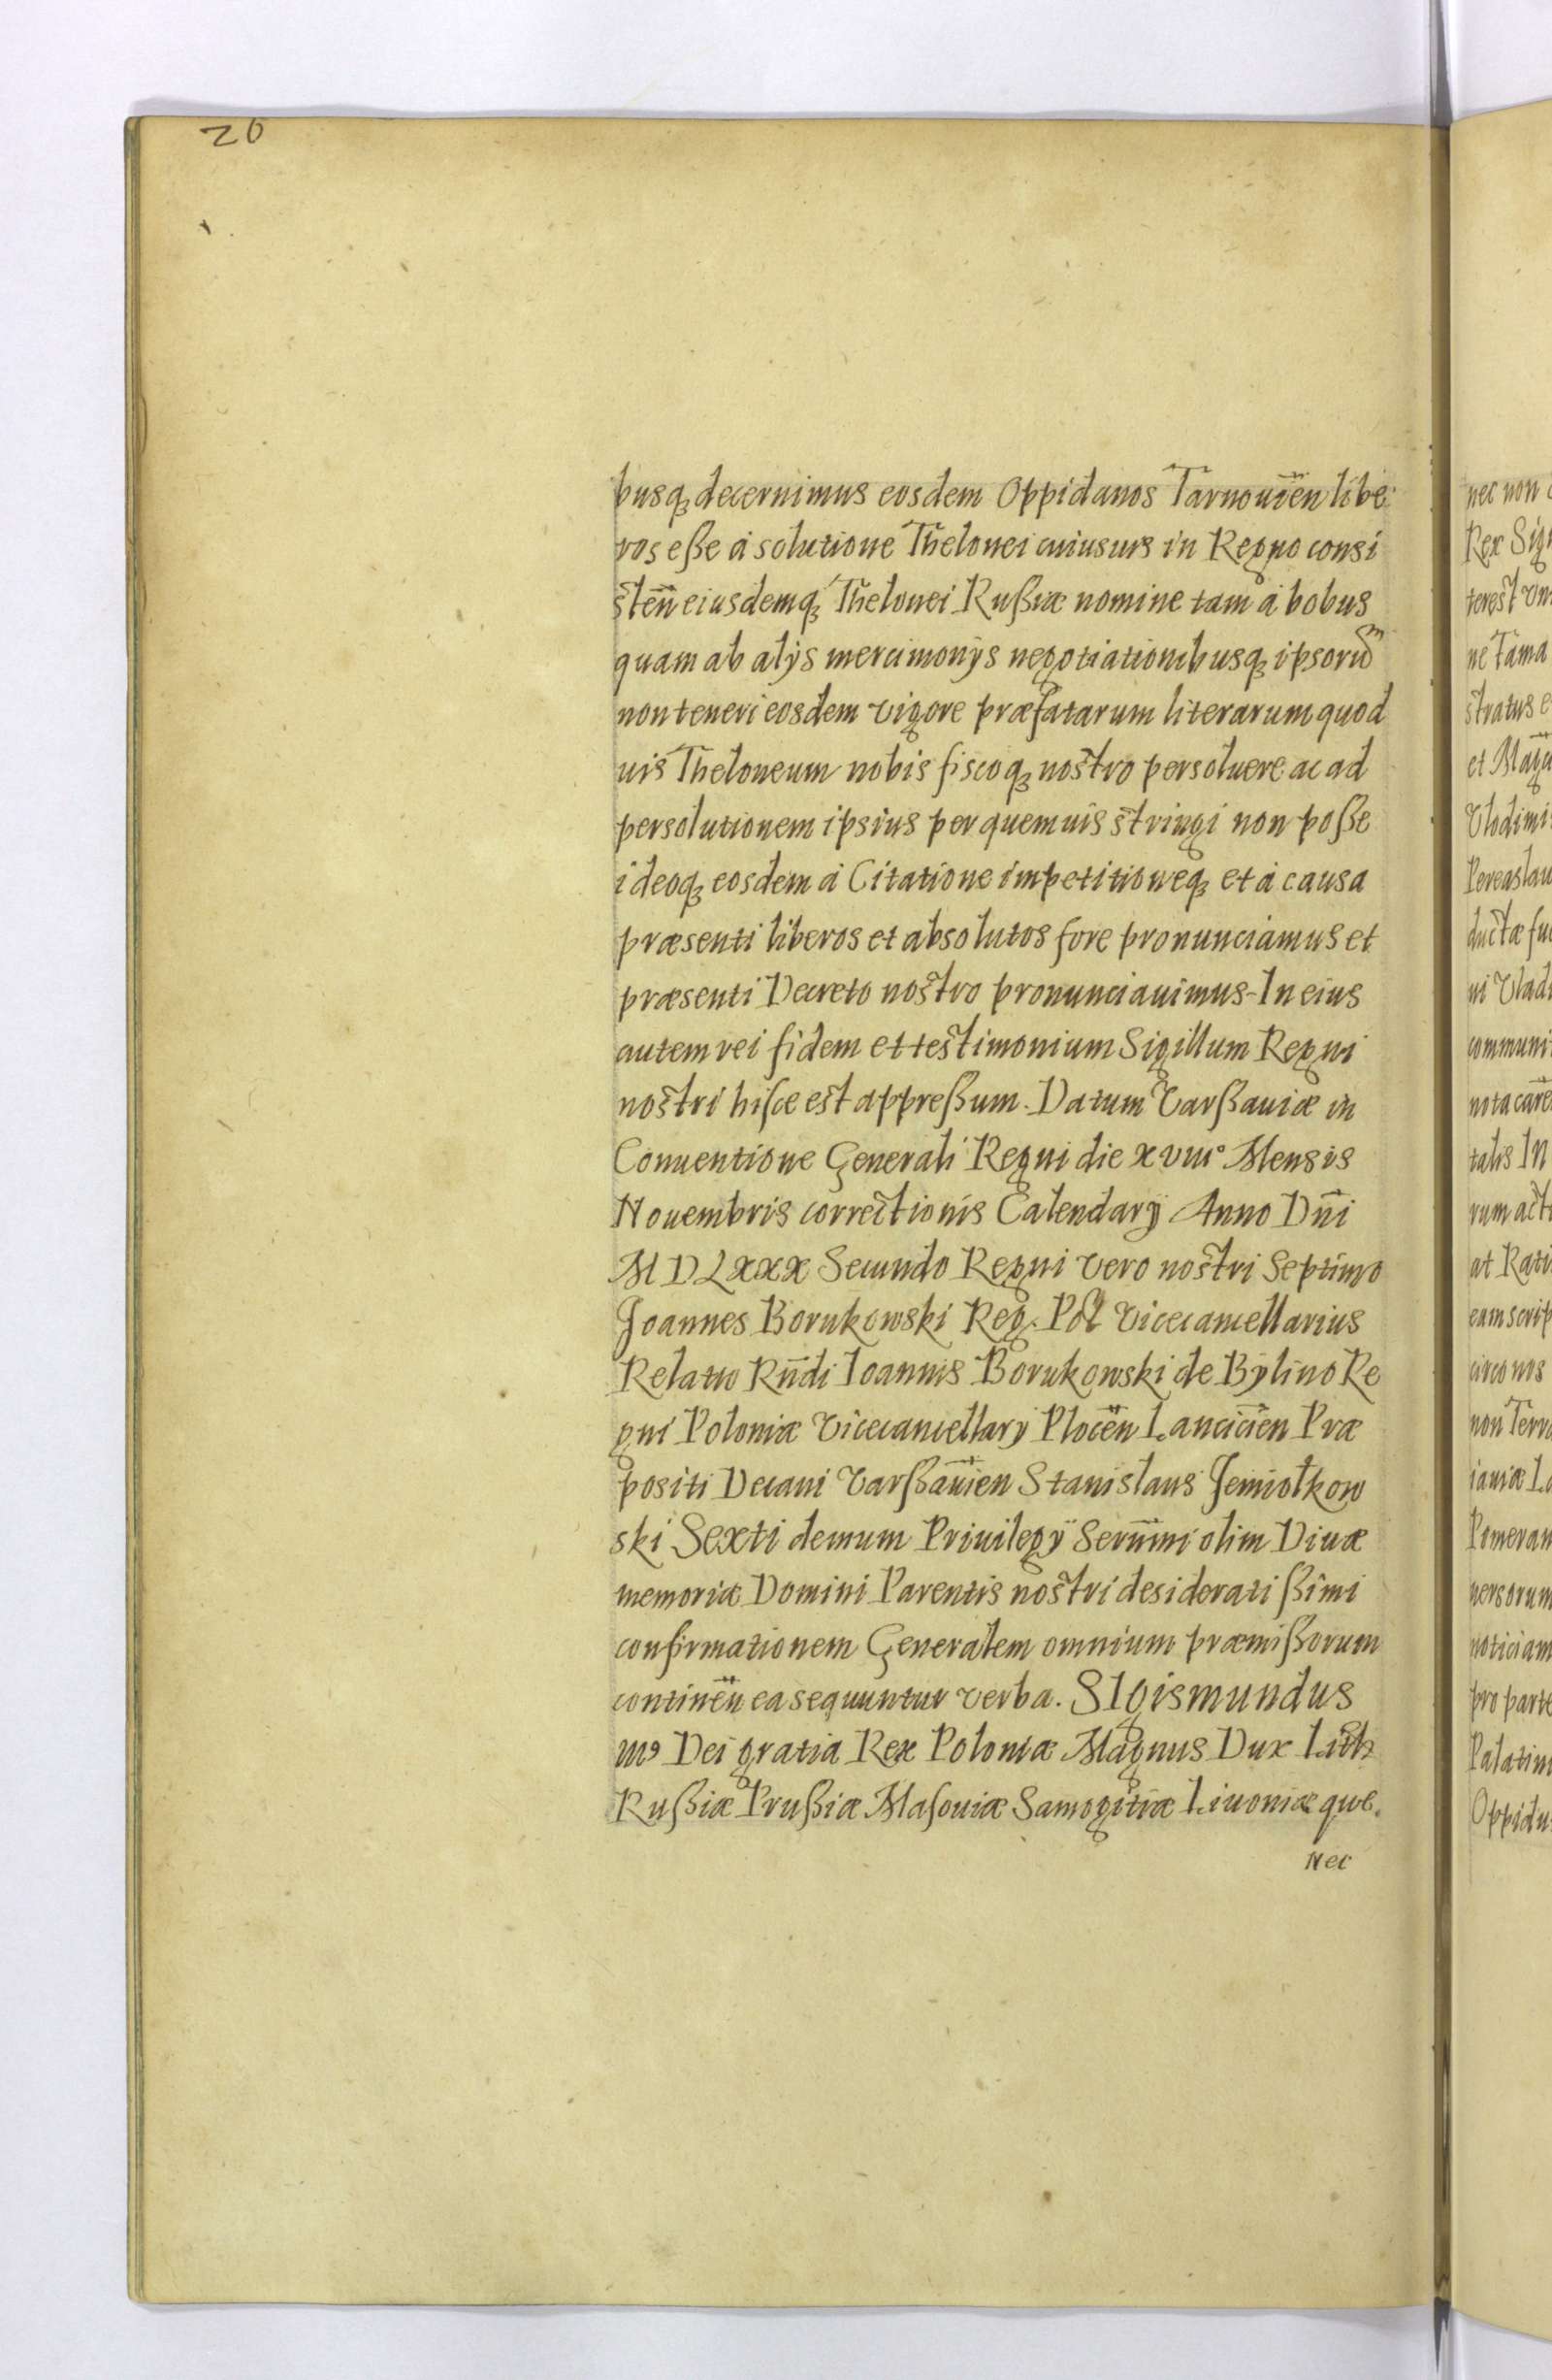 20
busq₃ decernimus eosdem Oppidanos Tarnouien̄ libe
ros eße à solutione Thelonei cuiusuis in Regno consi
sten̄ eiusdemq₃ Thelonei Rußiæ nomine tam à bobus
quam ab alijs mercimonijs negotiationibusq₃ ipsorum
non teneri eosdem vigore præfatarum literarum quod
uis Theloneum nobis fiscoq₃ nostro persoluere ac ad
persolutionem ipsius per quemuis stringi non poße
ideoq₃ eosdem à Citatione impetitioneq₃ et à causa
præsenti liberos et absolutos fore pronunciamus et
præsenti Decreto nostro pronunciauimus - In eius
autem rei fidem et testimonium Sigillum Regni
nostri hisce est appreßum. Datum Varßauiæ in
Conuentione Generali Regni die xviii° Mensis
Nouembris correctionis Calendarÿ Anno Dn̄i
MDLxxx Secundo Regni vero nostri Septimo
Joannes Borukowski Reg. Pol Vicecancellarius
Relatio Rn̄di Ioannis Borukowski de Bÿlino Re
gni Poloniæ Vicecancellarÿ Plocen̄ Lancicien̄ Præ
positi Decani Varßauien̄ Stanislaus Jemiołkow
ski Sexti demum Priuilegÿ Sern̄imi olim Diuæ
memoriæ Domini Parentis nostri desideratißimi
confirmationem Generalem omnium præmißorum
continen̄ ea sequuntur verba. SIgismundus
III9 Dei gratia Rex Poloniæ Magnus Dux Lith
Rußiæ Prußiæ Masouiæ Samogitiæ Liuoniæque.
Nec
nec non
Rex Sig
terest
ne Tama
stratus e
et Magn
Vlodimi
Pereaslau
ductæ fu
ni Vlad
communi
nota care
talis In
rum act
at Rati
eam scrip
circo nos
non Terr
iauiæ L
Pomeran
uersorum
noticiam
pro parte
Palatin
Oppidu